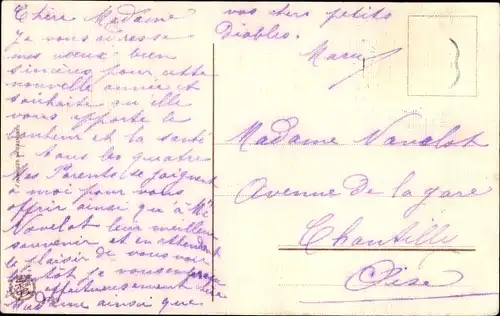 Chère Madame
Je vous adresse
mes vœux bien
sincères pour cette
nouvelle année et
souhaite qu'elle
vous apporte le
bonheur et la santé
à tous les quatre
Mes Parents se joignent
à moi pour vous
offrir ainsi qu'à Mr
Navelot leur meilleur
souvenir et en attendant
le plaisir de vous voir
bientôt je vous embrasse
affectueusement chère
Madame ainsi que
vos chers petits
Diables.
Madame Navelot
Avenue de la gare
Chantilly
Oise